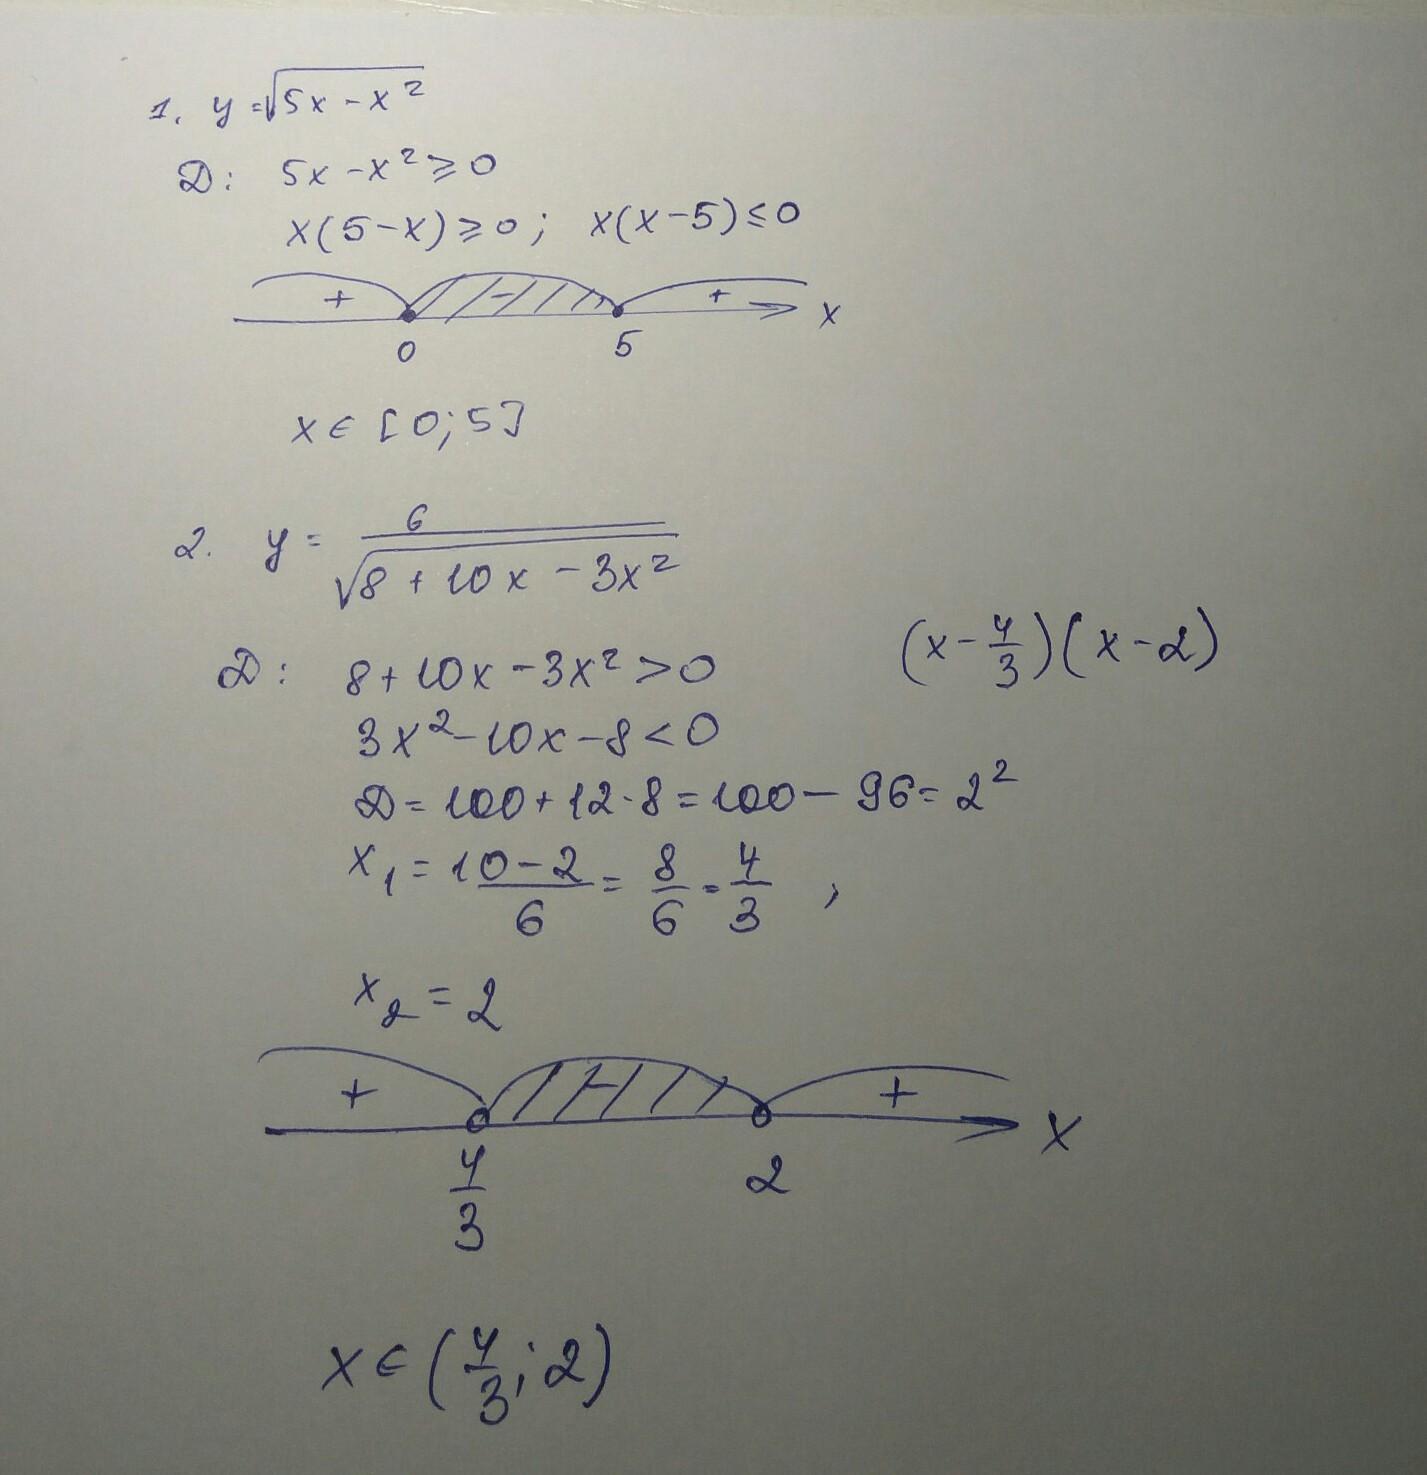 1. y = √(5x - x²)
D: 5x - x² ⩾ 0
x(5-x) ⩾ 0; x(x-5) ⩽ 0
+ - + x
0 5
x ∈ [0; 5]
2. y = 6/√(8 + 10x - 3x²)
(x - 4/3)(x - 2)
D: 8 + 10x - 3x² > 0
3x² - 10x - 8 < 0
D = 100 + 12 · 8 = 100 - 96 = 2²
x₁ = (10 - 2)/6 = 8/6 = 4/3 ,
x₂ = 2
+ - + x
4/3 2
x ∈ (4/3; 2)